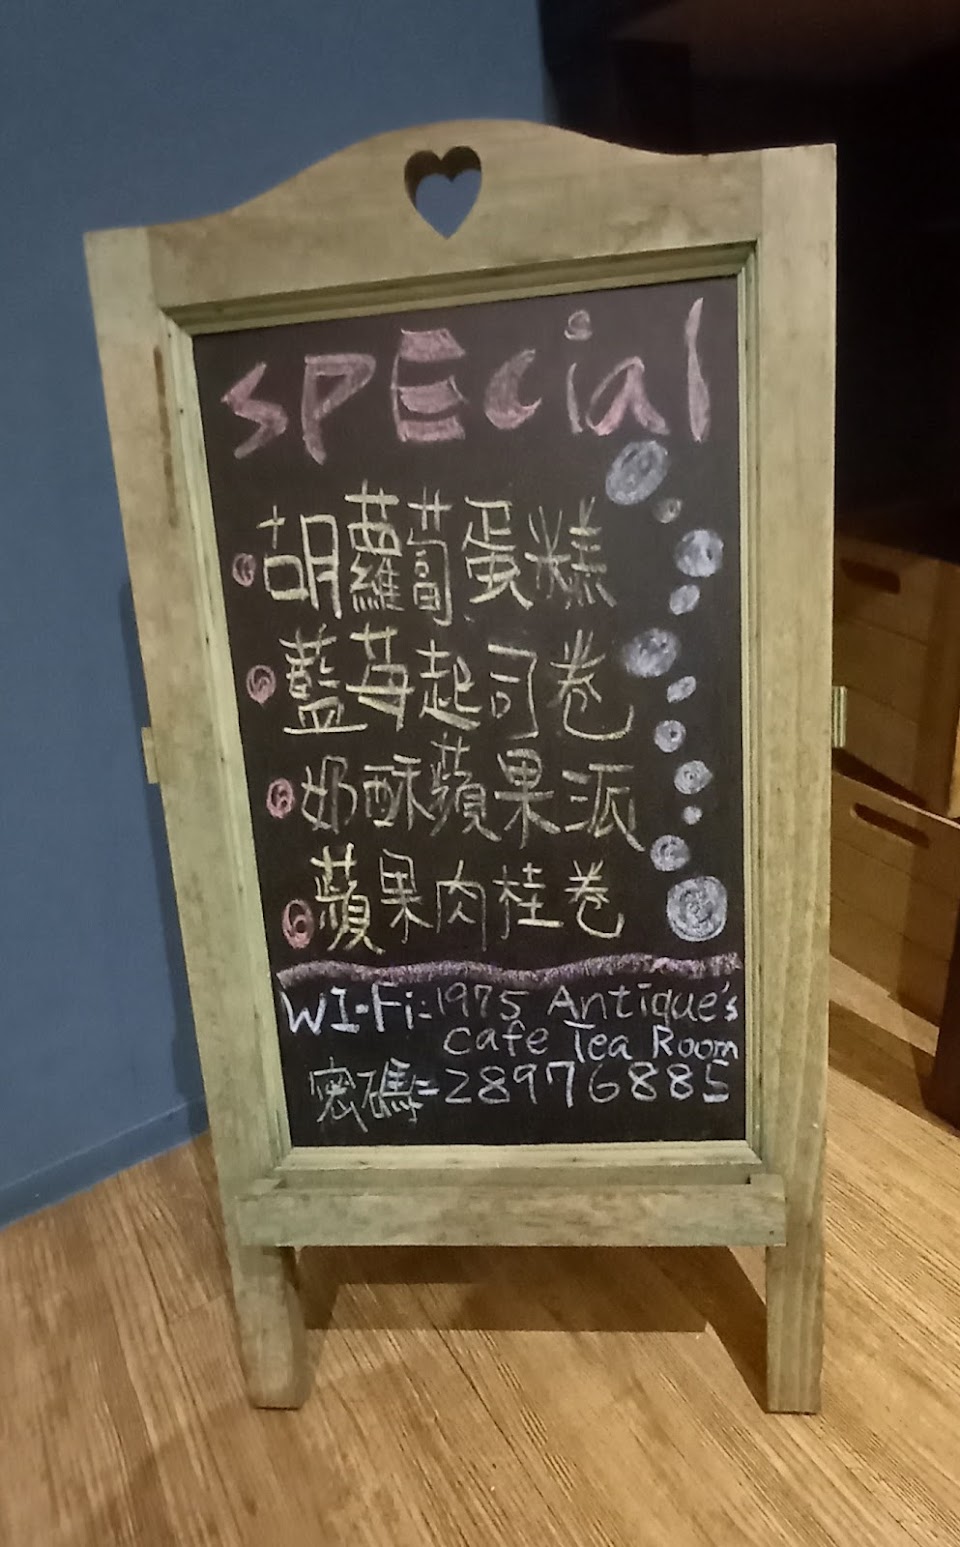 spEcial
胡蘿蔔蛋糕
藍莓起司卷
奶酥蘋果派
蘋果肉桂卷
WI-Fi=1975 Antique's
Cafe Tea Room
密碼=28976885